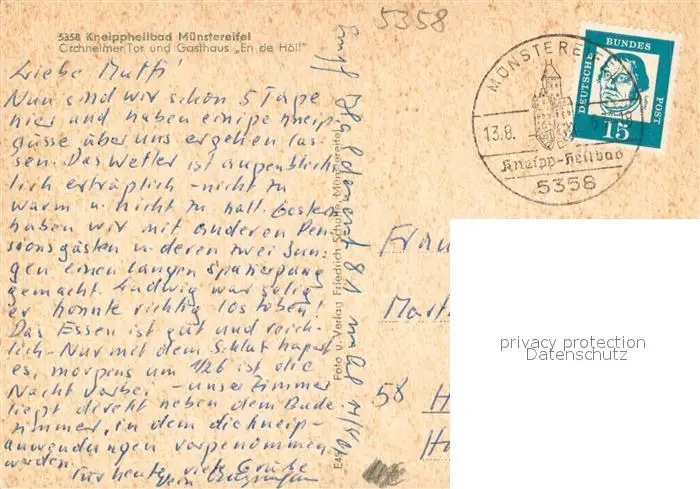 5358
5358 Kneippheilbad Münstereifel
Orchheimer Tor und Gasthaus „En de Höll"
Liebe Mutti!
Nun sind wir schon 5 Tage
hier und haben einige Kneip-
güsse über uns ergehen las-
sen. Das Wetter ist augenblick-
lich erträglich – nicht zu
warm u. nicht zu kalt. Gestern
haben wir mit anderen Pen-
sionsgästen u. deren zwei Jun-
gen einen langen Spaziergang
gemacht. Ludwig war selig
er konnte richtig los toben!
Das Essen ist gut und reich-
lich – Nur mit dem Schlaf hapert
es, morgens um 1/2 6 ist die
Nacht vorbei – unser Zimmer
liegt direkt neben dem Bade
zimmer, in dem die Kneip-
anwendungen vorgenommen
werden.
Für heute viele Grüße
Dein
Foto u. Verlag Friedrich Schulte, Münstereifel
MÜNSTEREIFEL
13.8.
Kneipp-Heilbad
5358
DEUTSCHE
BUNDES
POST
15
Frau
58
privacy protection
Datenschutz